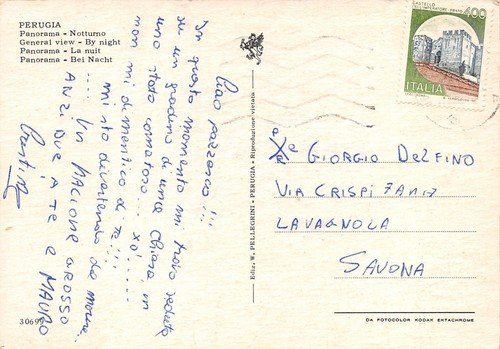 PERUGIA
Panorama - Notturno
General view - By night
Panorama - La nuit
Panorama - Bei Nacht
Ciao pazzasco!!!
In questo momento mi trovo seduta
su un gradino di una chiesa in
uno stato comatoso... xò
non mi dimentico di te!!!
.... mi sto divertendo da morire
.... Un BACIONE GROSSO
ANZI DUE A TE e MAURO
30699
Ediz. W. PELLEGRINI - PERUGIA - Riproduzione vietata
CASTELLO
DELL'IMPERATORE - PRATO
400
ITALIA
GIORGIO DELFINO
VIA CRISPI
LAVAGNOLA
SAVONA
DA FOTOCOLOR KODAK EKTACHROME